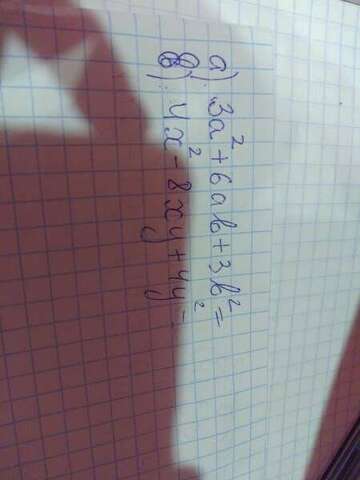 а) 3a² + 6ab + 3b² =
в) 4x² - 8xy + 4y² =